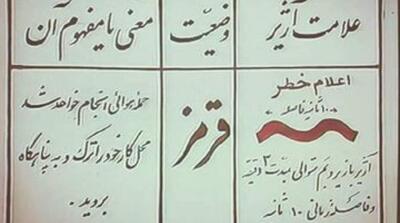 علامت آژیر
وضعیت
معنی یا مفهوم آن
اعلام خطر
ثانیه فاصله
آژیر با زیر و بم متوالی بمدت ۳ دقیقه
و فاصله زمانی ۱۰ ثانیه
قرمز
حمله هوائی انجام خواهد شد
محل کار خود را ترک و به پناهگاه
بروید.